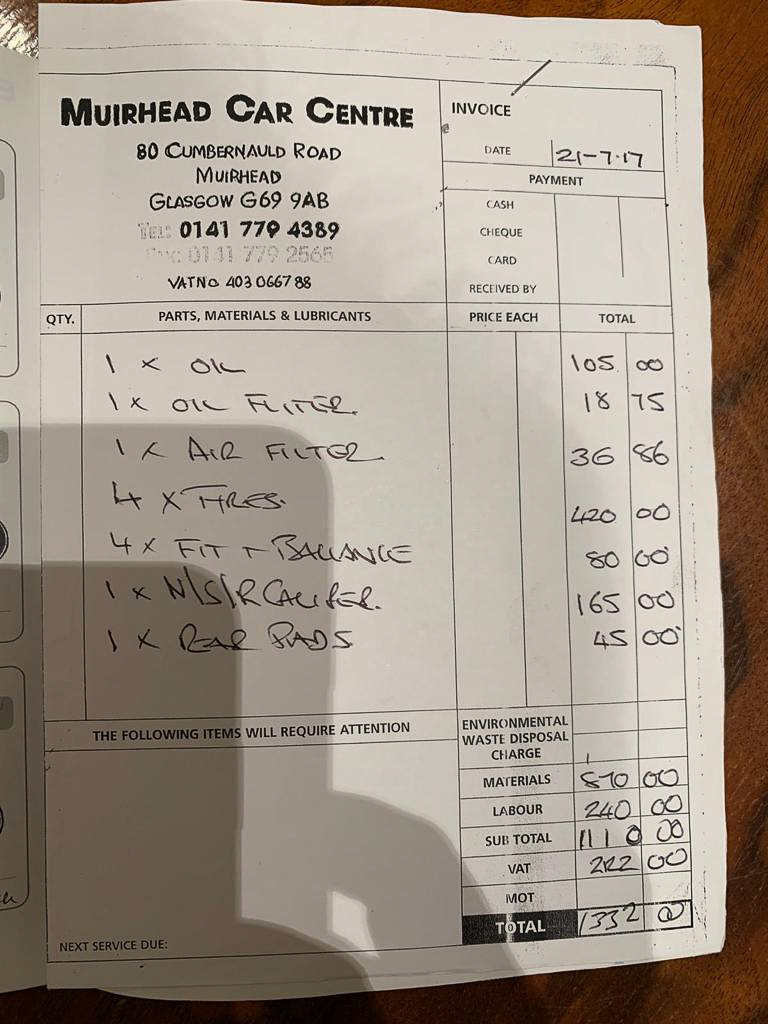 MUIRHEAD CAR CENTRE
80 CUMBERNAULD ROAD
MUIRHEAD
GLASGOW G69 9AB
TEL: 0141 779 4389
Fax: 0141 779 2565
VAT NO 403 0667 88
INVOICE
DATE 21-7-17
PAYMENT
CASH
CHEQUE
CARD
RECEIVED BY
QTY. PARTS, MATERIALS & LUBRICANTS PRICE EACH TOTAL
1 x OIL 105 00
1 x OIL FILTER. 18 75
1 x AIR FILTER 36 86
4 x TYRES. 420 00
4 x FIT + BALLANCE 80 00
1 x N/S/R CALIPER. 165 00
1 x REAR PADS 45 00
THE FOLLOWING ITEMS WILL REQUIRE ATTENTION
ENVIRONMENTAL
WASTE DISPOSAL
CHARGE
MATERIALS 870 00
LABOUR 240 00
SUB TOTAL 1110 00
VAT 222 00
MOT
TOTAL 1332 00
NEXT SERVICE DUE: